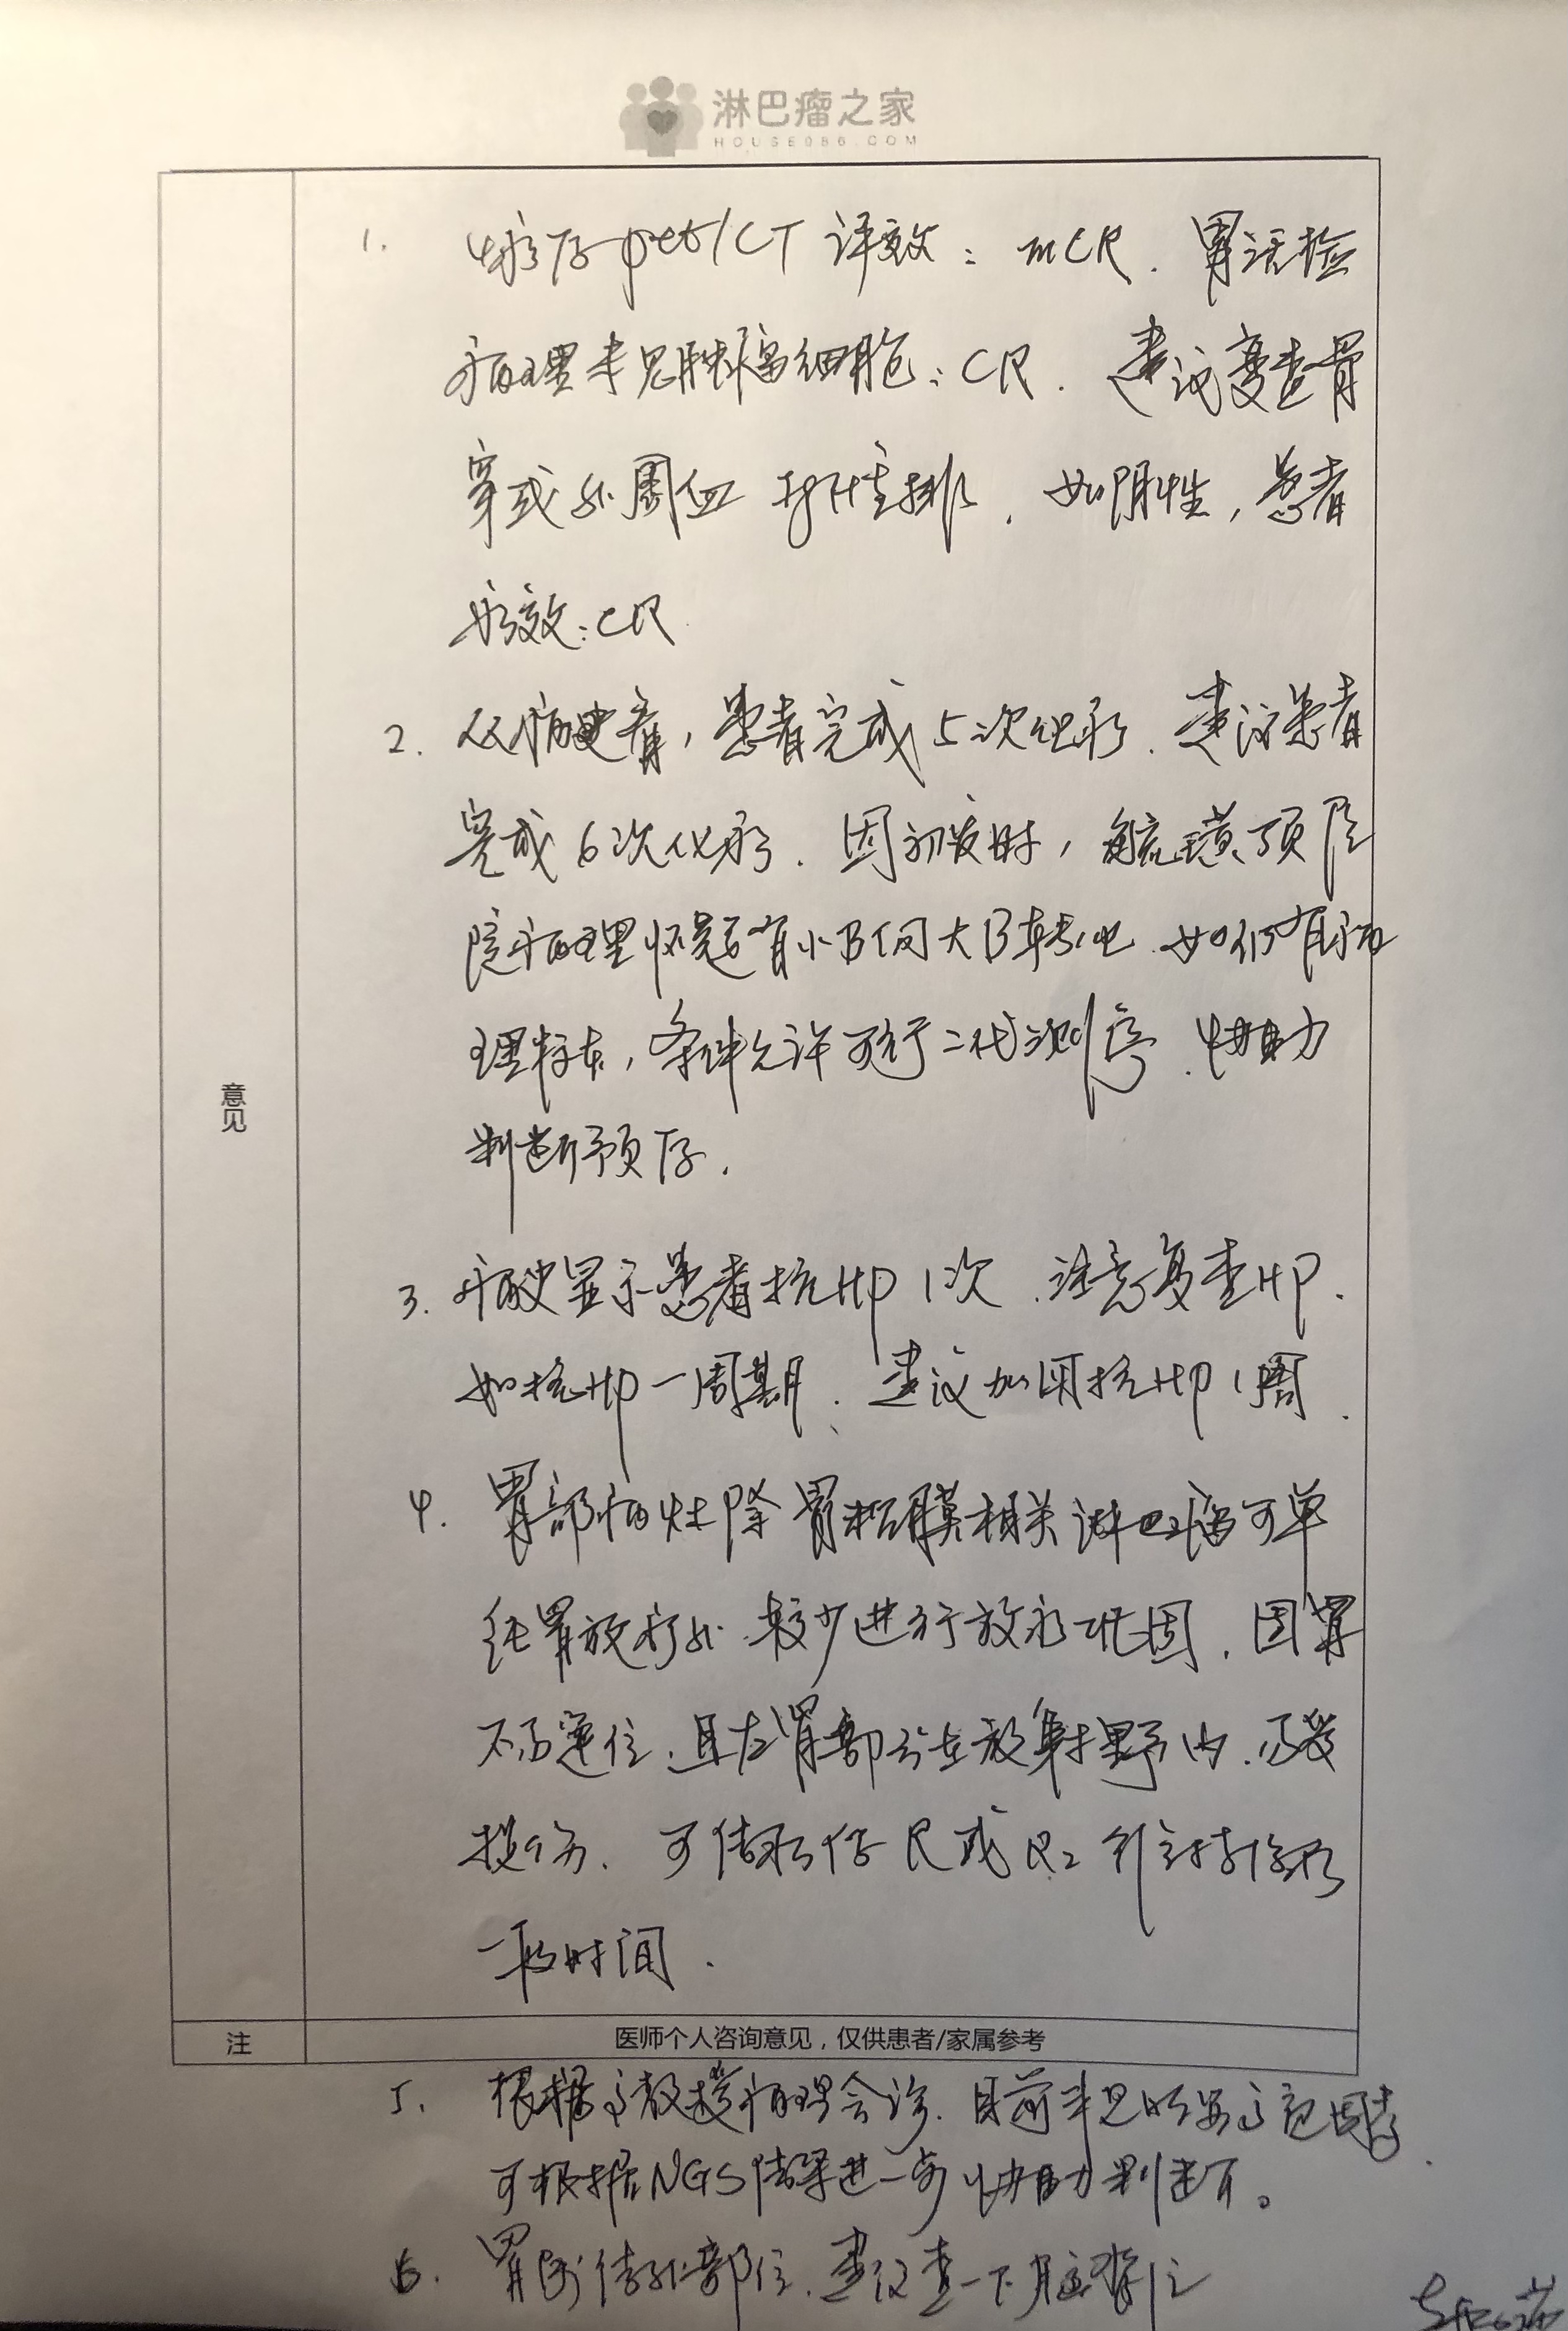 淋巴瘤之家
HOUSE086.COM
1. 4疗后pet/CT评效：mCR．胃活检
病理未见肿瘤细胞：CR．建议复查骨
穿或外周血IgH重排．如阴性，患者
疗效：CR
2. 从病史看，患者完成5次化疗．建议患者
完成6次化疗．因初发时，
院病理怀疑有小B向大B转化．如仍有病
理标本，条件允许可行二代测序．协助
判断预后．
3. 病史显示患者抗HP 1次．注意复查HP．
如抗HP一周期．建议加用抗HP 1周．
4. 胃部病灶除胃粘膜相关淋巴瘤可单
纯胃放疗外．较少进行放疗巩固．因胃
不易定位．且左肾部分在放射野内．易受
损伤．可结疗后R或R2 维持治疗
一段时间．
意见
注
医师个人咨询意见，仅供患者/家属参考
5. 根据高教授病理会诊．目前未见明显高危因素．
可根据NGS结果进一步协助判断。
6. 胃属结外部位．建议查一下